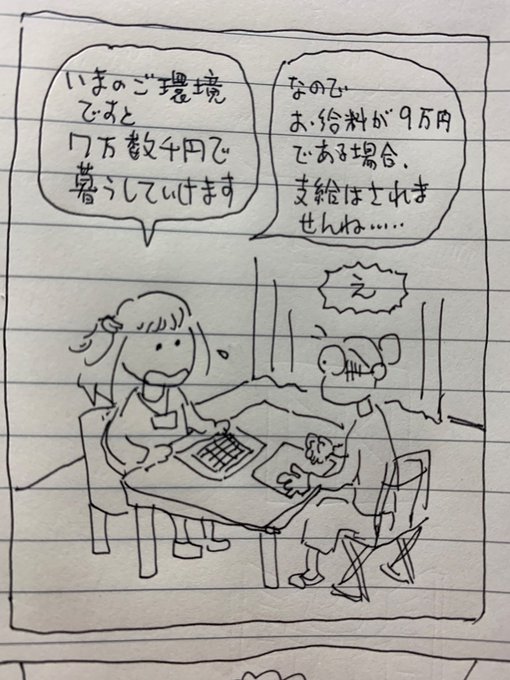 いまのご環境
ですと
7万数千円で
暮らしていけます
なので
お給料が9万円
である場合、
支給はされま
せんね……
え